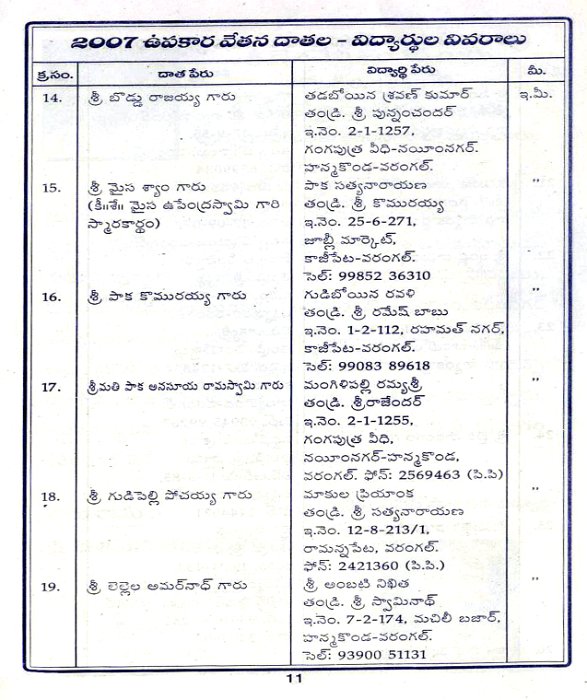 2007 ఉపకార వేతన దాతల - విద్యార్థుల వివరాలు
క్ర.సం. దాత పేరు విద్యార్థి పేరు మి.
14. శ్రీ బొడ్డు రాజయ్య గారు తడబోయిన శ్రవణ్ కుమార్ ఇ.మీ.
తండ్రి. శ్రీ పున్నంచందర్
ఇ.నెం. 2-1-1257,
గంగపుత్ర వీధి-నయీంనగర్.
హన్మకొండ-వరంగల్.
15. శ్రీ మైస శ్యాం గారు పాక సత్యనారాయణ "
(కీ॥శే॥ మైస ఉపేంద్రస్వామి గారి తండ్రి. శ్రీ. కొమురయ్య
స్మారకార్థం) ఇ.నెం. 25-6-271,
జూబ్లీ మార్కెట్,
కాజీపేట-వరంగల్.
సెల్: 99852 36310
16. శ్రీ పాక కొమురయ్య గారు గుడిబోయిన రవళి "
తండ్రి. శ్రీ రమేష్ బాబు
ఇ.నెం. 1-2-112, రహమత్ నగర్,
కాజీపేట-వరంగల్.
సెల్: 99083 89618
17. శ్రీమతి పాక అనసూయ రామస్వామి గారు మంగిళిపల్లి రమ్యశ్రీ "
తండ్రి. శ్రీరాజేందర్
ఇ.నెం. 2-1-1255,
గంగపుత్ర వీధి,
నయీంనగర్-హన్మకొండ,
వరంగల్. ఫోన్: 2569463 (పి.పి)
18. శ్రీ గుడిపెల్లి పోచయ్య గారు మాకుల ప్రియాంక "
తండ్రి. శ్రీ సత్యనారాయణ
ఇ.నెం. 12-8-213/1,
రామన్నపేట, వరంగల్.
ఫోన్: 2421360 (పి.పి.)
19. శ్రీ లెల్లెల అమర్‌నాథ్ గారు శ్రీ అంబటి నిఖిత "
తండ్రి. శ్రీ స్వామినాథ్
ఇ.నెం. 7-2-174, మచిలీ బజార్,
హన్మకొండ-వరంగల్.
సెల్: 93900 51131
11